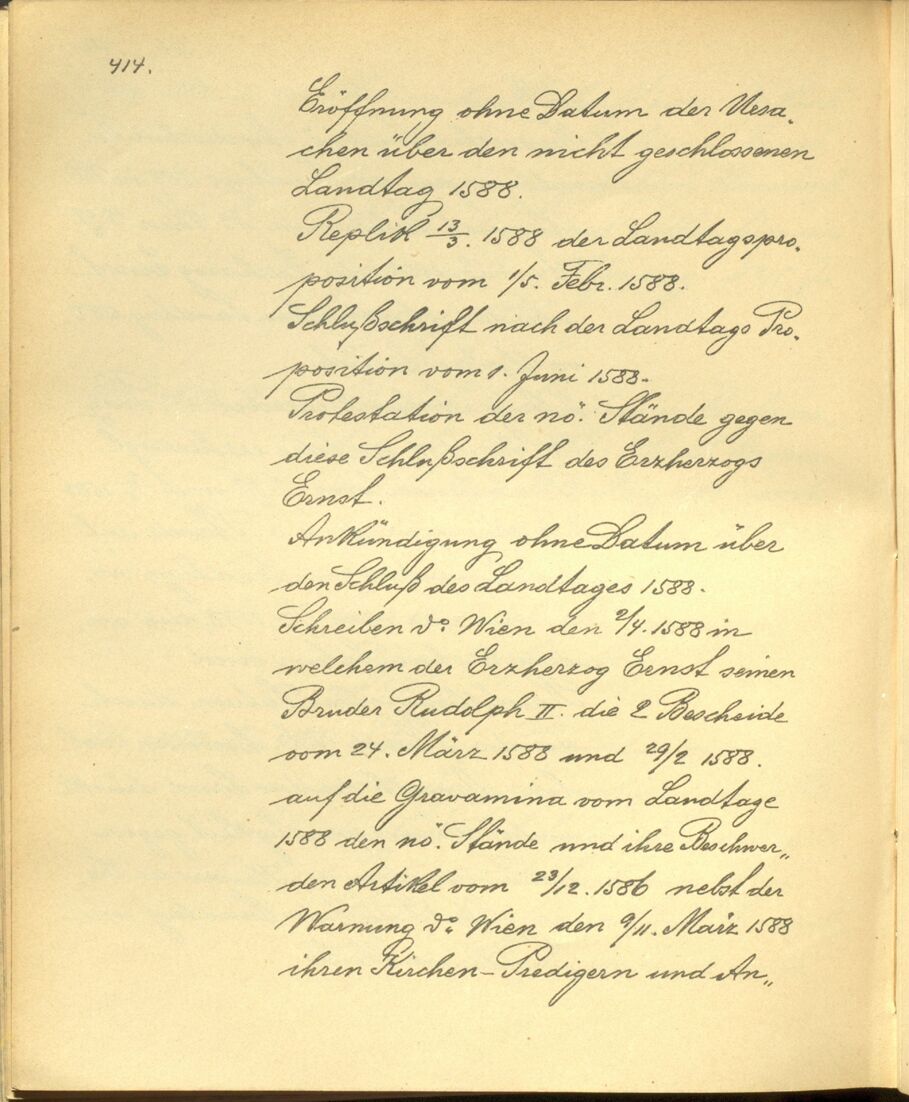 414.
Eröffnung ohne Datum der Uesa-
chen über den nicht geschlossenen
Landtag 1588.
Replik 13/3. 1588 der Landtagspro-
position vom 1/5. Febr. 1588.
Schlußschrift nach der Landtags Pro-
position vom 1. Juni 1588.
Protestation der nö. Stände gegen
diese Schlußschrift des Erzherzogs
Ernst.
Ankündigung ohne Datum über
den Schluß des Landtages 1588.
Schreiben do Wien den 2/4. 1588 in
welchem der Erzherzog Ernst seinen
Bruder Rudolph II. die 2 Bescheide
vom 24. März 1588 und 29/2 1588.
auf die Gravamina vom Landtage
1588 den nö. Stände und ihre Beschwer„
den Artikel vom 23/12. 1586 nebst der
Warnung do Wien den 9/11. März 1588
ihren Kirchen-Predigern und An„